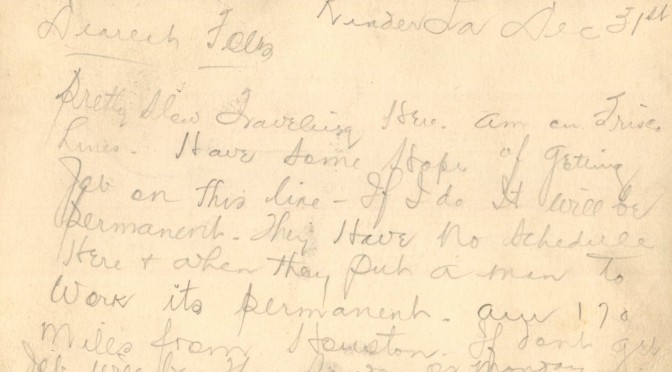 Kinder La Dec 31st
Dearest Folks
Pretty slow Traveling Here. am on Frisco
Lines. Have some Hope of Getting
Job on this line - If I do It will be
permanent. They Have No Schedule
Here + when they put a man to
Work its permanent. am 170
Miles from Houston. If dont get
Job will be